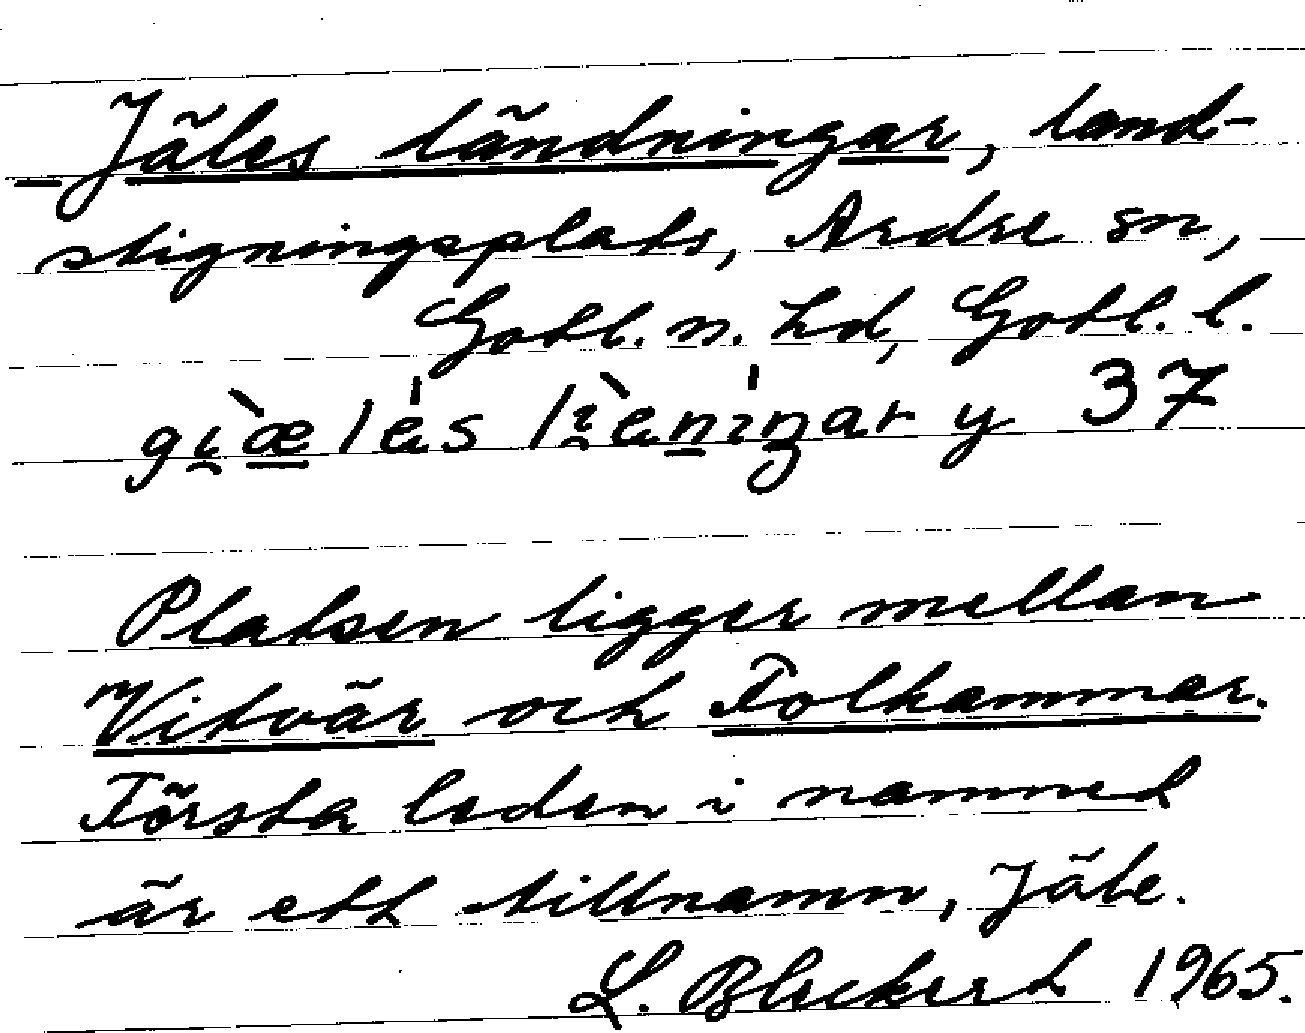 Jäles ländningar, land-
stigningsplats, Ardre sn,
Gotl. n. hd, Gotl. l.
y 37
Platsen ligger mellan
Vitvär och Folhammar.
Första leden i namnet
är ett tillnamn, Jäle.
L. Bleckert 1965.